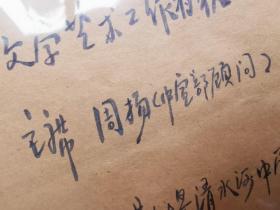 文学艺术工作者
主席 周扬(中宣部顾问)
清水河